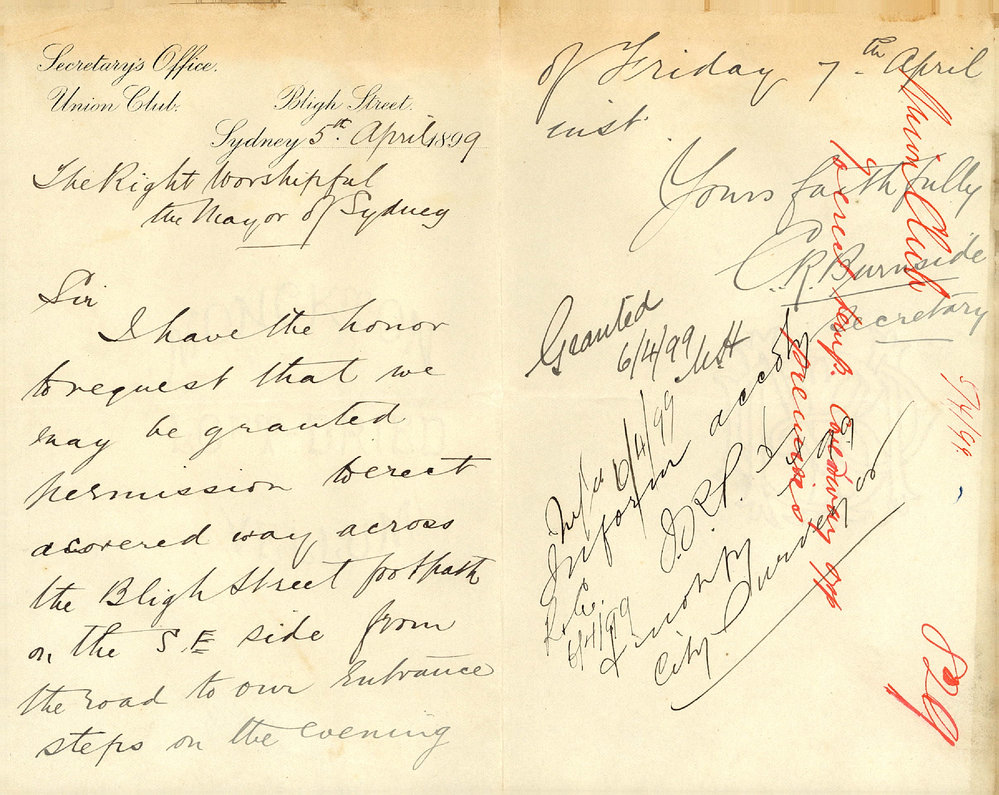 Secretary's Office.
Union Club. Bligh Street.
Sydney 5th. April 1899
The Right Worshipful
the Mayor of Sydney
Sir
I have the honor
to request that we
may be granted
permission to erect
a covered way across
the Bligh Street footpath
on the S.E side from
the road to our Entrance
steps on the evening
of Friday 7th April
inst.
Yours faithfully
C.R. Burnside
Secretary
Granted
6/4/99
6/4/99
Inform accordly
6/4/99
City Surveyor
Union Club
to erect temp. Covd way opp
premises
5/4/99
829